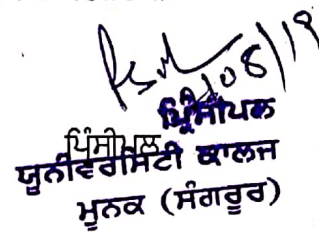 /08/19
ਪ੍ਰਿੰਸੀਪਲ
ਪ੍ਰਿੰਸੀਪਲ
ਯੂਨੀਵਰਸਿਟੀ ਕਾਲਜ
ਮੂਨਕ (ਸੰਗਰੂਰ)